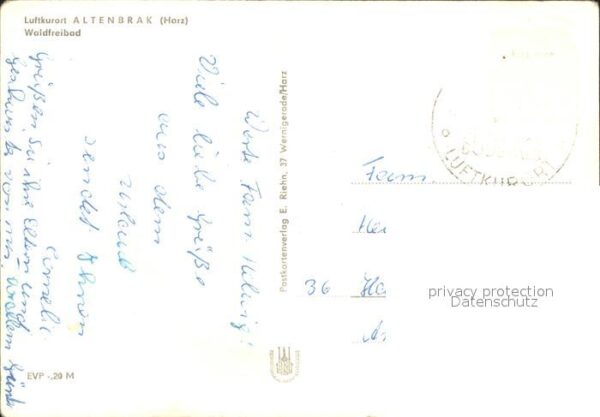 Luftkurort ALTENBRAK (Harz)
Waldfreibad
Werte Fam. Helwig!
Viele liebe Grüße
aus dem
Urlaub
sendet Ihnen
Cornelia
Grüßen Sie ihre Eltern und
von mir
EVP -,20 M
Postkartenverlag E. Riehn, 37 Wernigerode/Harz
LUFTKURORT
Fam.
36
privacy protection
Datenschutz